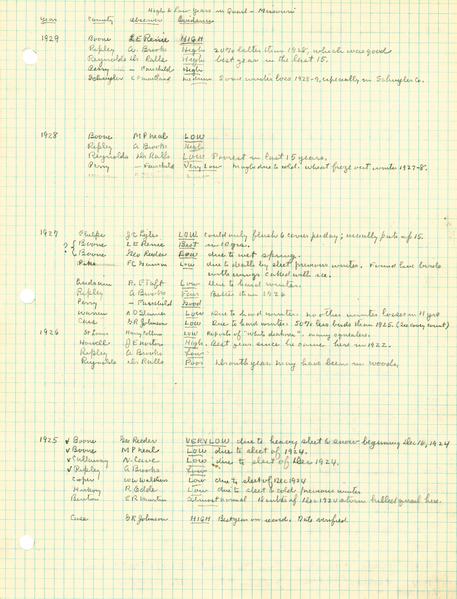 High & Low Years in Quail - Missouri
Year County Observer Evidence
1929 Boone L E Renie HIGH
Repley A. Brooks High 20% better than 1928, which was good
Reynolds Dr. Ralls High best year in the last 15.
Perry — Fairchild High
Schuyler C. Some winter loss 1928-9, especially in Schuyler Co.
1928 Boone M P Neal LOW
Repley A Brooks High
Reynolds Dr Ralls LOW Poorest in last 15 years.
Perry — Fairchild Very Low Maybe due to cold. wheat froze out winter 1927-8.
1927 Phelps J C LOW could only flush 4 coveys per day; usually puts up 15.
? Boone L E Renie Best in 10 yrs.
Boone Geo Reeder Low due to wet spring.
Pike F C Low due to death by sleet previous winter. Found live birds
with wings caked with ice.
R. E Taft Low due to hard winter.
Repley A Brooks Fair Better than 1926
Perry — Fairchild Good
Warren Low Due to hard winter. no other winter losses in 11 yrs
Cass B R Johnson Low Due to hard winter. 50% less birds than 1925. (see covey count)
1926 St Louis Harry Low Reports of "white diarrhoea", many
Howell J E High. Best year since he came here in 1922.
Repley A. Brooks Low
Reynolds Dr Ralls Poor Drouth year may have been in woods.
1925 ✓ Boone Geo Reeder VERY LOW due to heavy sleet & snow beginning Dec 16, 1924
✓ Boone M P Neal LOW due to sleet of 1924.
✓ Callaway N. Low due to sleet of Dec 1924.
✓ Repley A Brooks Low
Cooper W W Low due to sleet of Dec 1924
R. Low due to sleet & cold previous winter
Benton E R normal of Dec 1924 storm killed quail here.
Cass B R Johnson HIGH Best year on record. Date verified